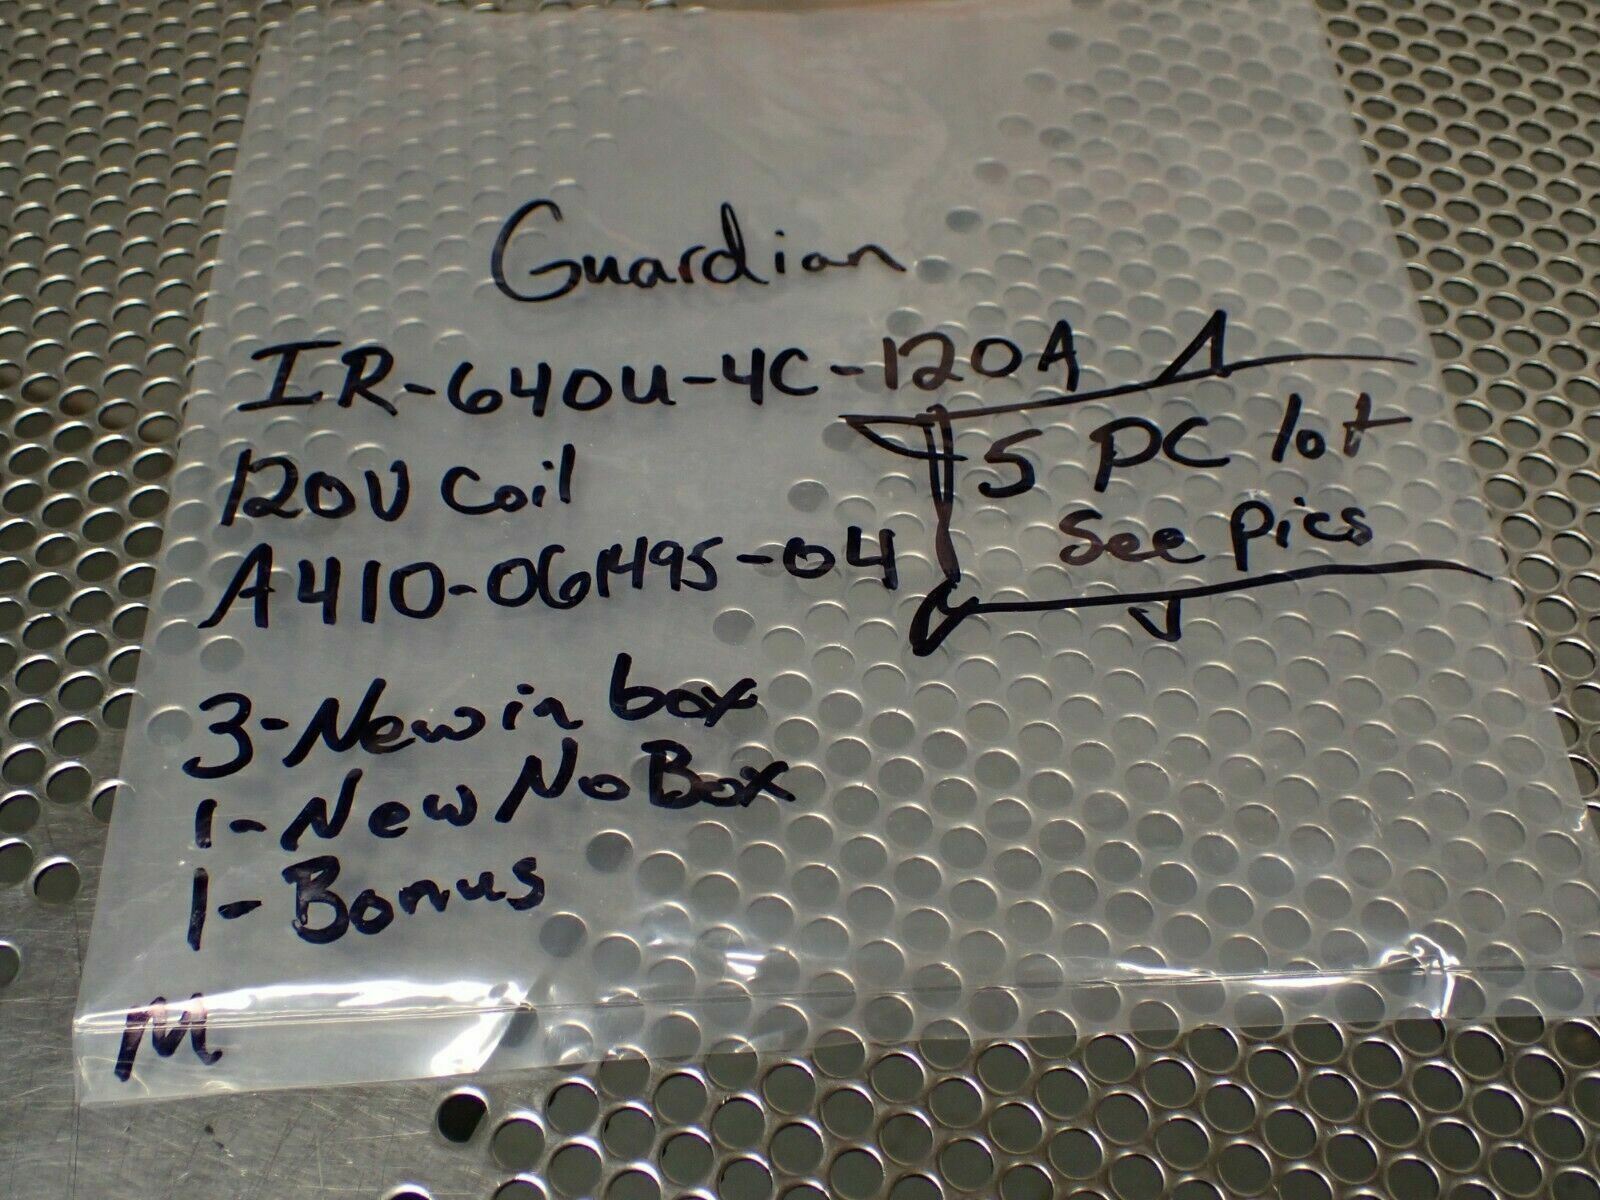 Guardian
IR-640U-4C-120A
120V Coil
A410-061495-04
5 PC lot
See pics
3-New in box
1-New No Box
1-Bonus
M